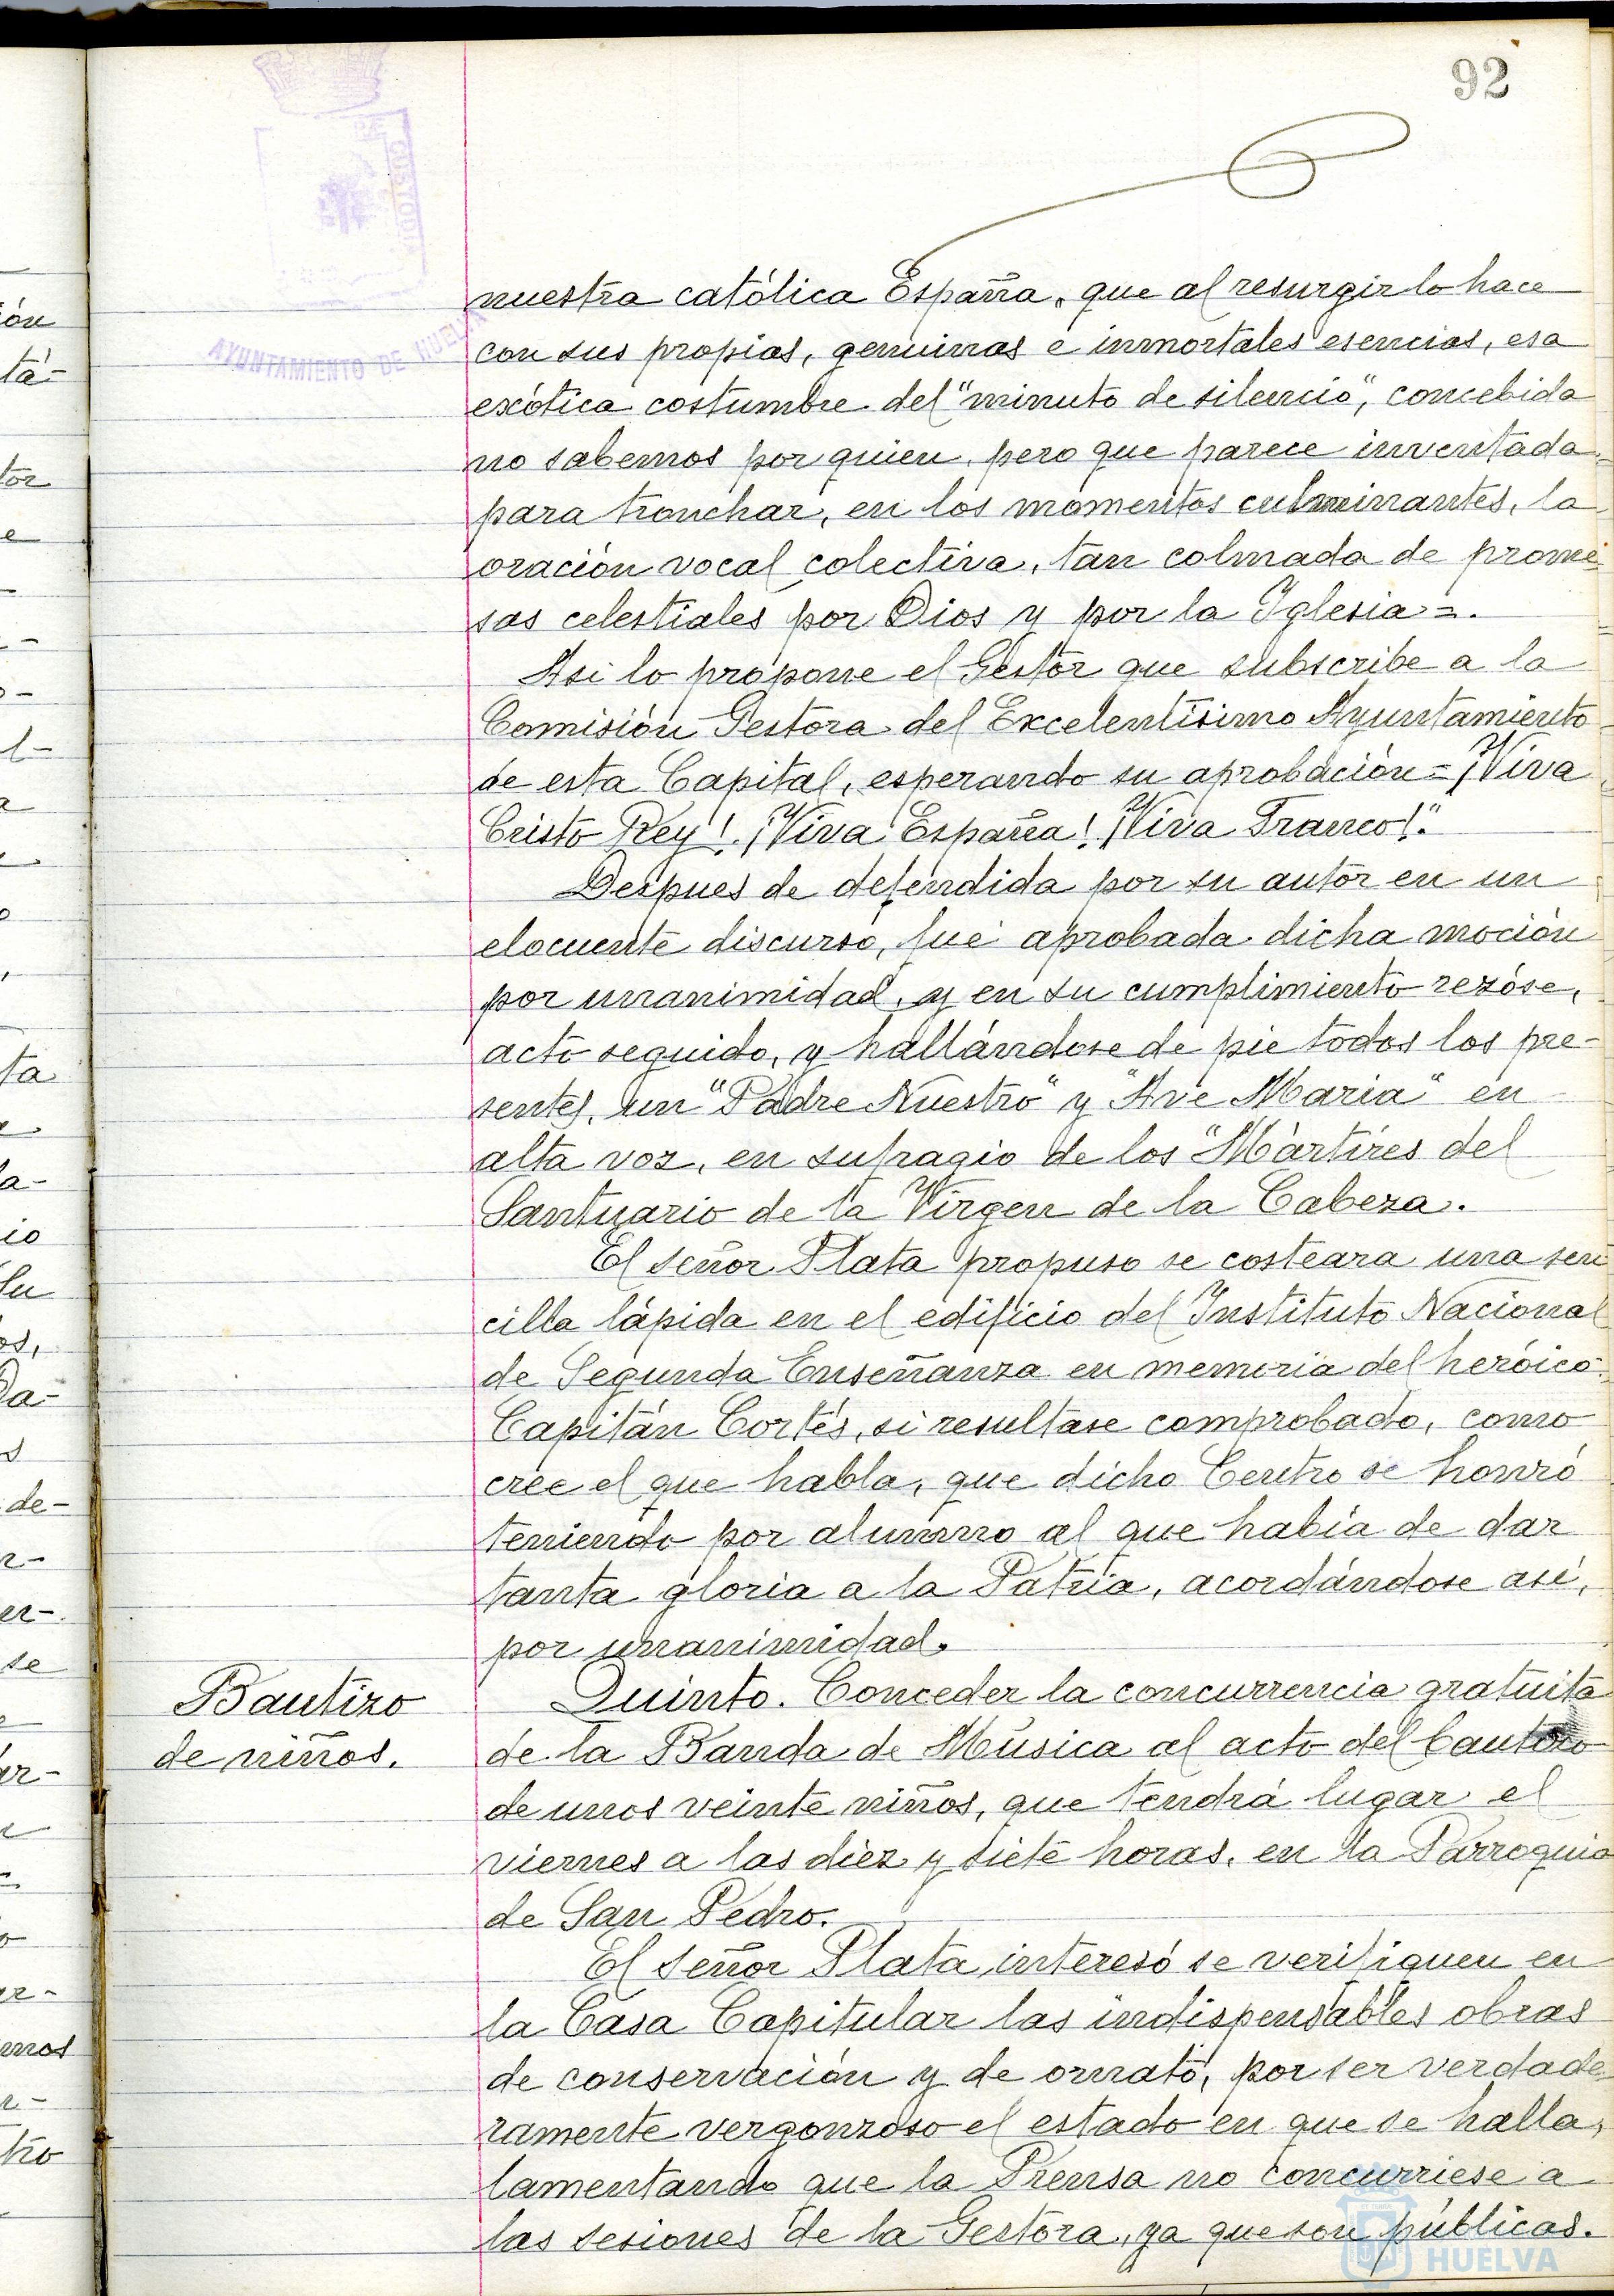 92
AYUNTAMIENTO DE HUELVA
CUSTODIA
nuestra católica España, que al resurgir lo hace
con sus propias, genuinas e inmortales esencias, esa
exótica costumbre del "minuto de silencio", concebida
no sabemos por quien, pero que parece inventada
para tronchar, en los momentos culminantes, la
oración vocal colectiva, tan colmada de prome-
sas celestiales por Dios y por la Iglesia=.
Asi lo propone el Gestor que subscribe a la
Comisión Gestora del Excelentísimo Ayuntamiento
de esta Capital, esperando su aprobación=¡Viva
Cristo Rey!. ¡Viva España! ¡Viva Franco!".
Despues de defendida por su autor en un
elocuente discurso, fué aprobada dicha moción
por unanimidad, y en su cumplimiento rezóse,
acto seguido, y hallándose de pie todos los pre-
sentes, un "Padre Nuestro" y "Ave Maria" en
alta voz, en sufragio de los "Mártires del
Santuario de la Virgen de la Cabeza.
El señor Plata propuso se costeara una sen
cilla lápida en el edificio del Instituto Nacional
de Segunda Enseñanza en memoria del heróico
Capitán Cortés, si resultase comprobado, como
cree el que habla, que dicho Centro se honró
teniendo por alumno al que había de dar
tanta gloria a la Patria, acordándose así,
por unanimidad.
Bautizo
de niños.
Quinto. Conceder la concurrencia gratuita
de la Banda de Música al acto del bautizo
de unos veinte niños, que tendrá lugar el
viernes a las diez y siete horas, en la Parroquia
de San Pedro.
El señor Plata interesó se verifiquen en
la Casa Capitular las indispensables obras
de conservación y de ornato, por ser verdade-
ramente vergonzoso el estado en que se halla,
lamentando que la Prensa no concurriese a
las sesiones de la Gestora, ya que son públicas.
HUELVA